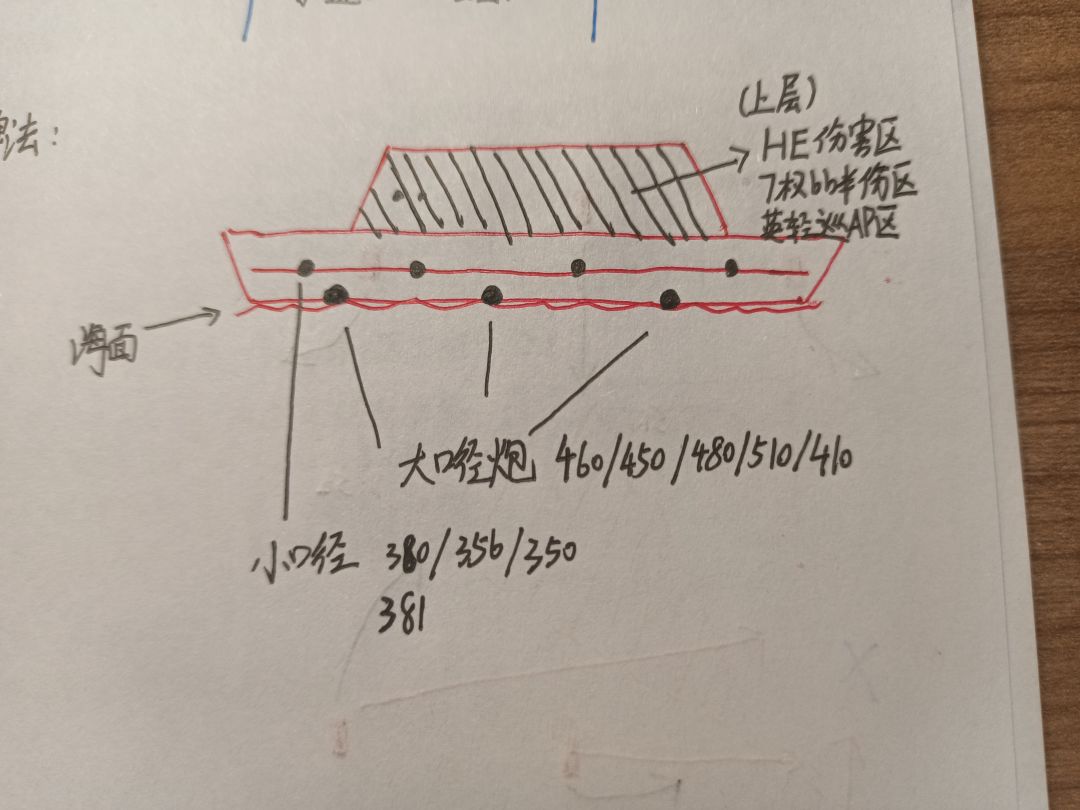 法：
(上层)
HE伤害区
7权bb半伤区
英轻巡AP区
海面
大口径炮 460/450/480/510/410
小口径 380/356/350
381